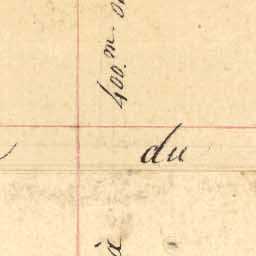 400.m.
du
à